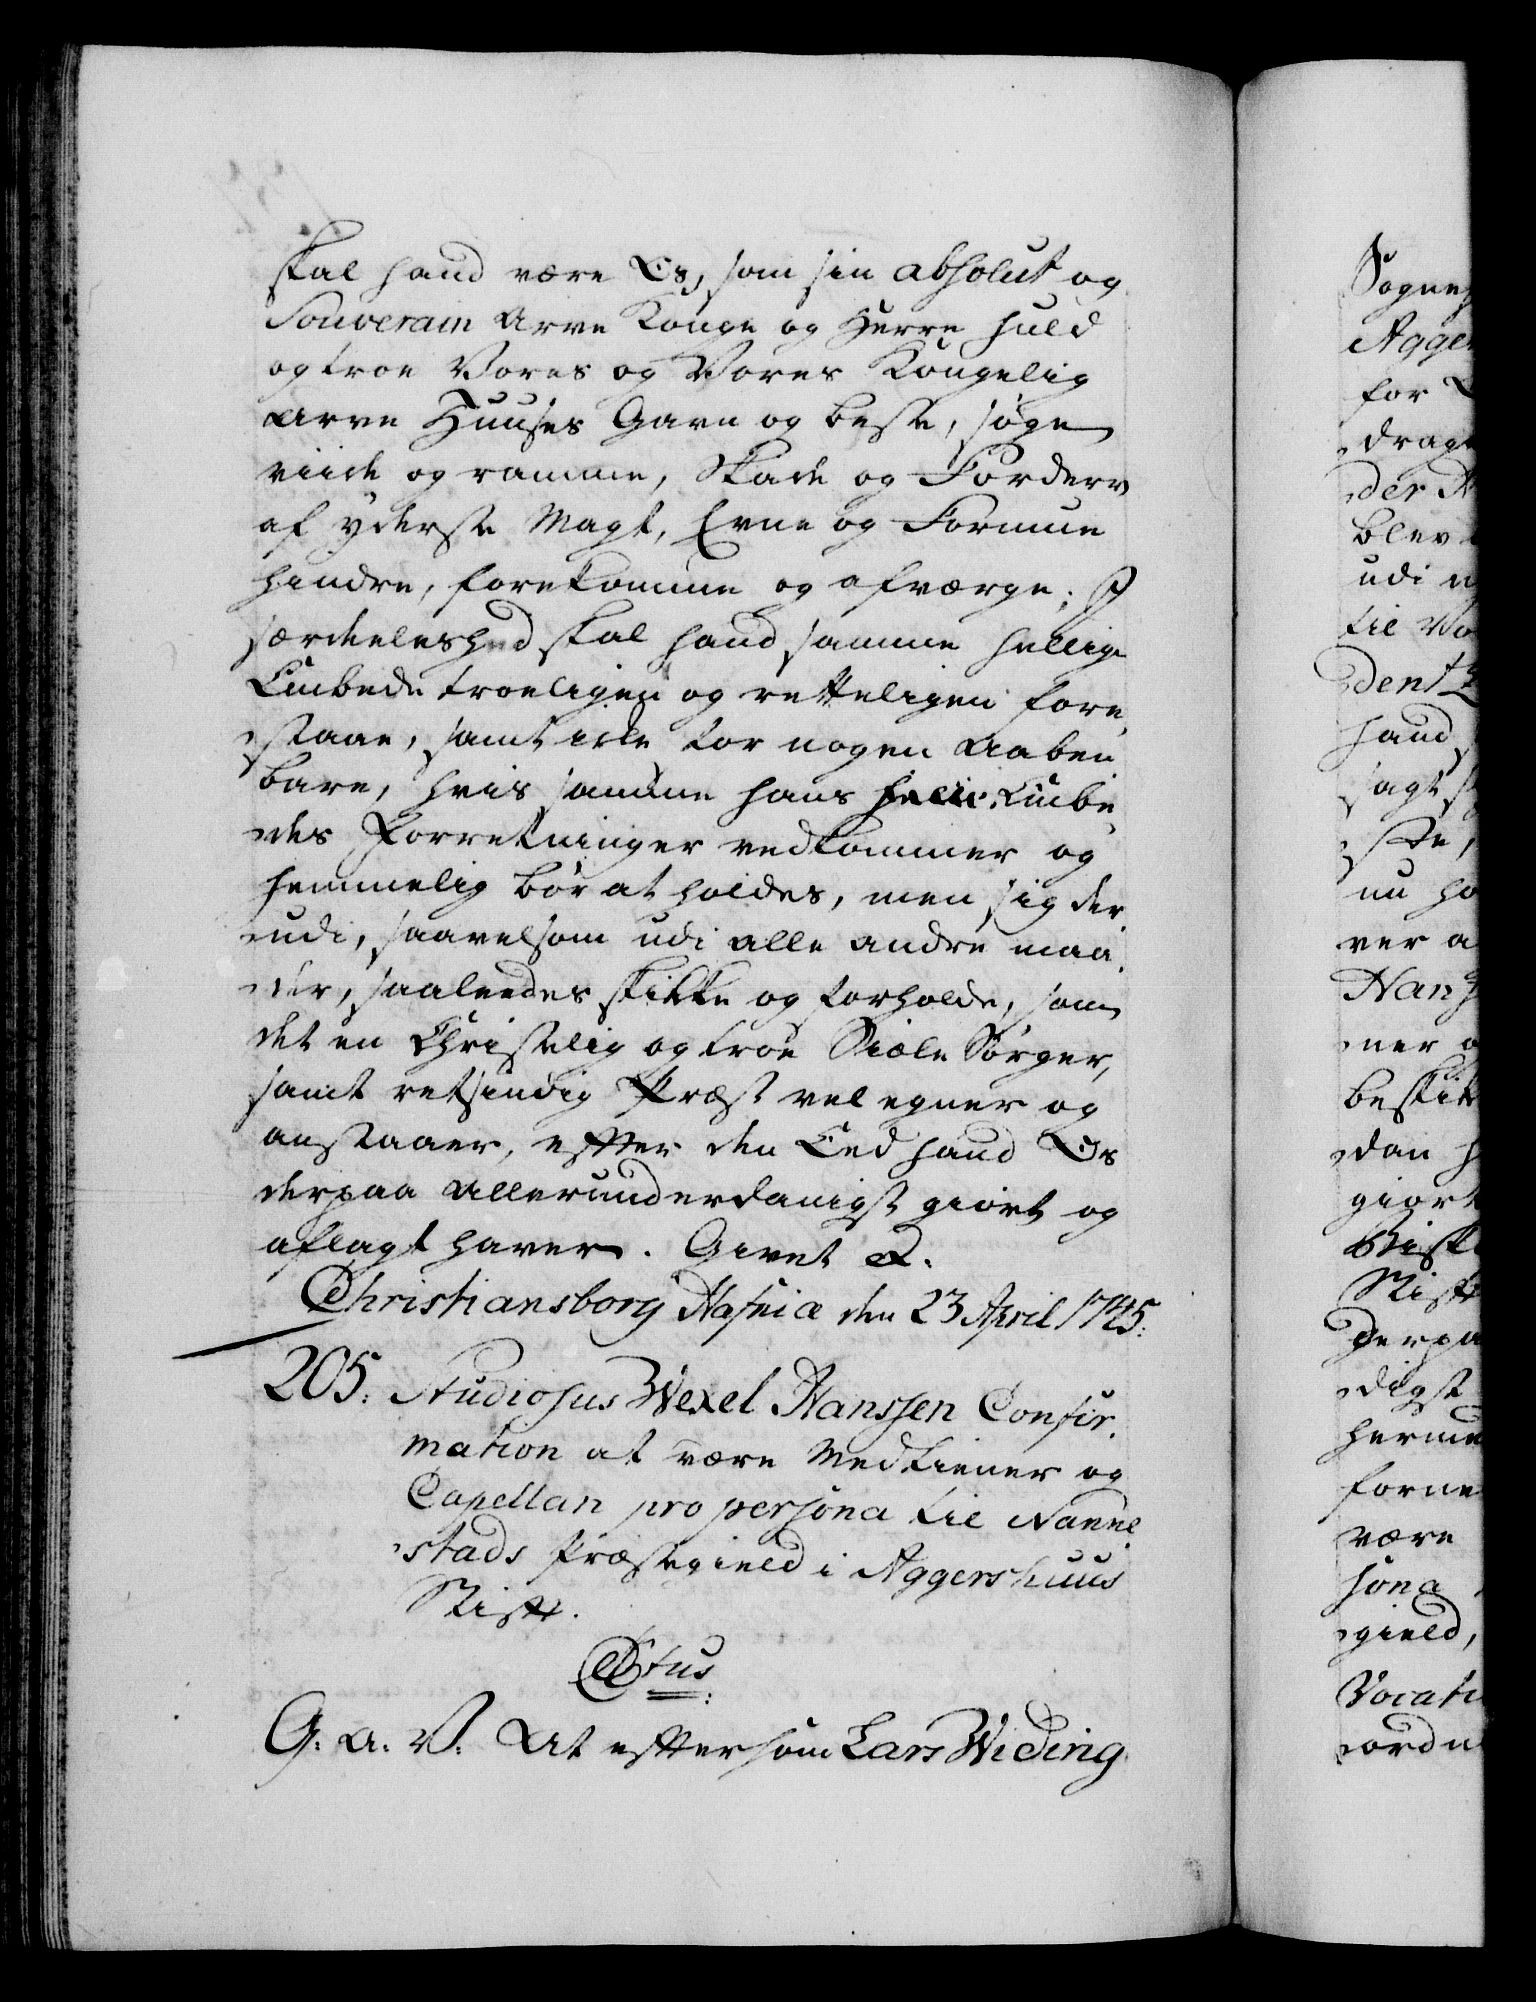 skal hand være Os, som sin absolut og
Souverain Arve Konge og Herre huld
og troe Vores og Vores Kongelig
Arve Huuses Gavn og beste, søge
viide og ramme, Skade og Forderv
af yderste Magt, Evne og Formue
hindre, forekomme og afværge; J
særdeleshed skal hand samme hellige
Embede troeligen og retteligen fore
staae, samt icke for nogen aaben
bare, hvis samme hans Embe
des Forretninger vedkommer og
hemmelig bør at holdes, men sig der
udi, saavelsom udi alle andre maa
der, saaledes skikke og forholde, som
det en Christelig og troe Siæle Sørger,
samt retsindig Præst vel egner og
anstaaer, efter den Eed hand Os
derpaa allerunderdanigst giort og
aflagt haver. Givet &.
Christiansborg Hafniæ den 23 April 1745.
205. Studiosus Wexel Hanssen Confir
mation at være Medtiener og
Capellan pro persona til Nanne
stads Præstegield i Aggershuus
Stift.
C 6tus.
G. A. V. At eftersom Lars Widing
Sogne
Agger
for
drag
der
blev
udi
til
dent
hand
sagt
ste,
nu
ver
Hans
ner
beskik
dan
giort
Bisk
Stift
derpa
digst
herme
forne
være
sona
gield,
Vocati
ordn